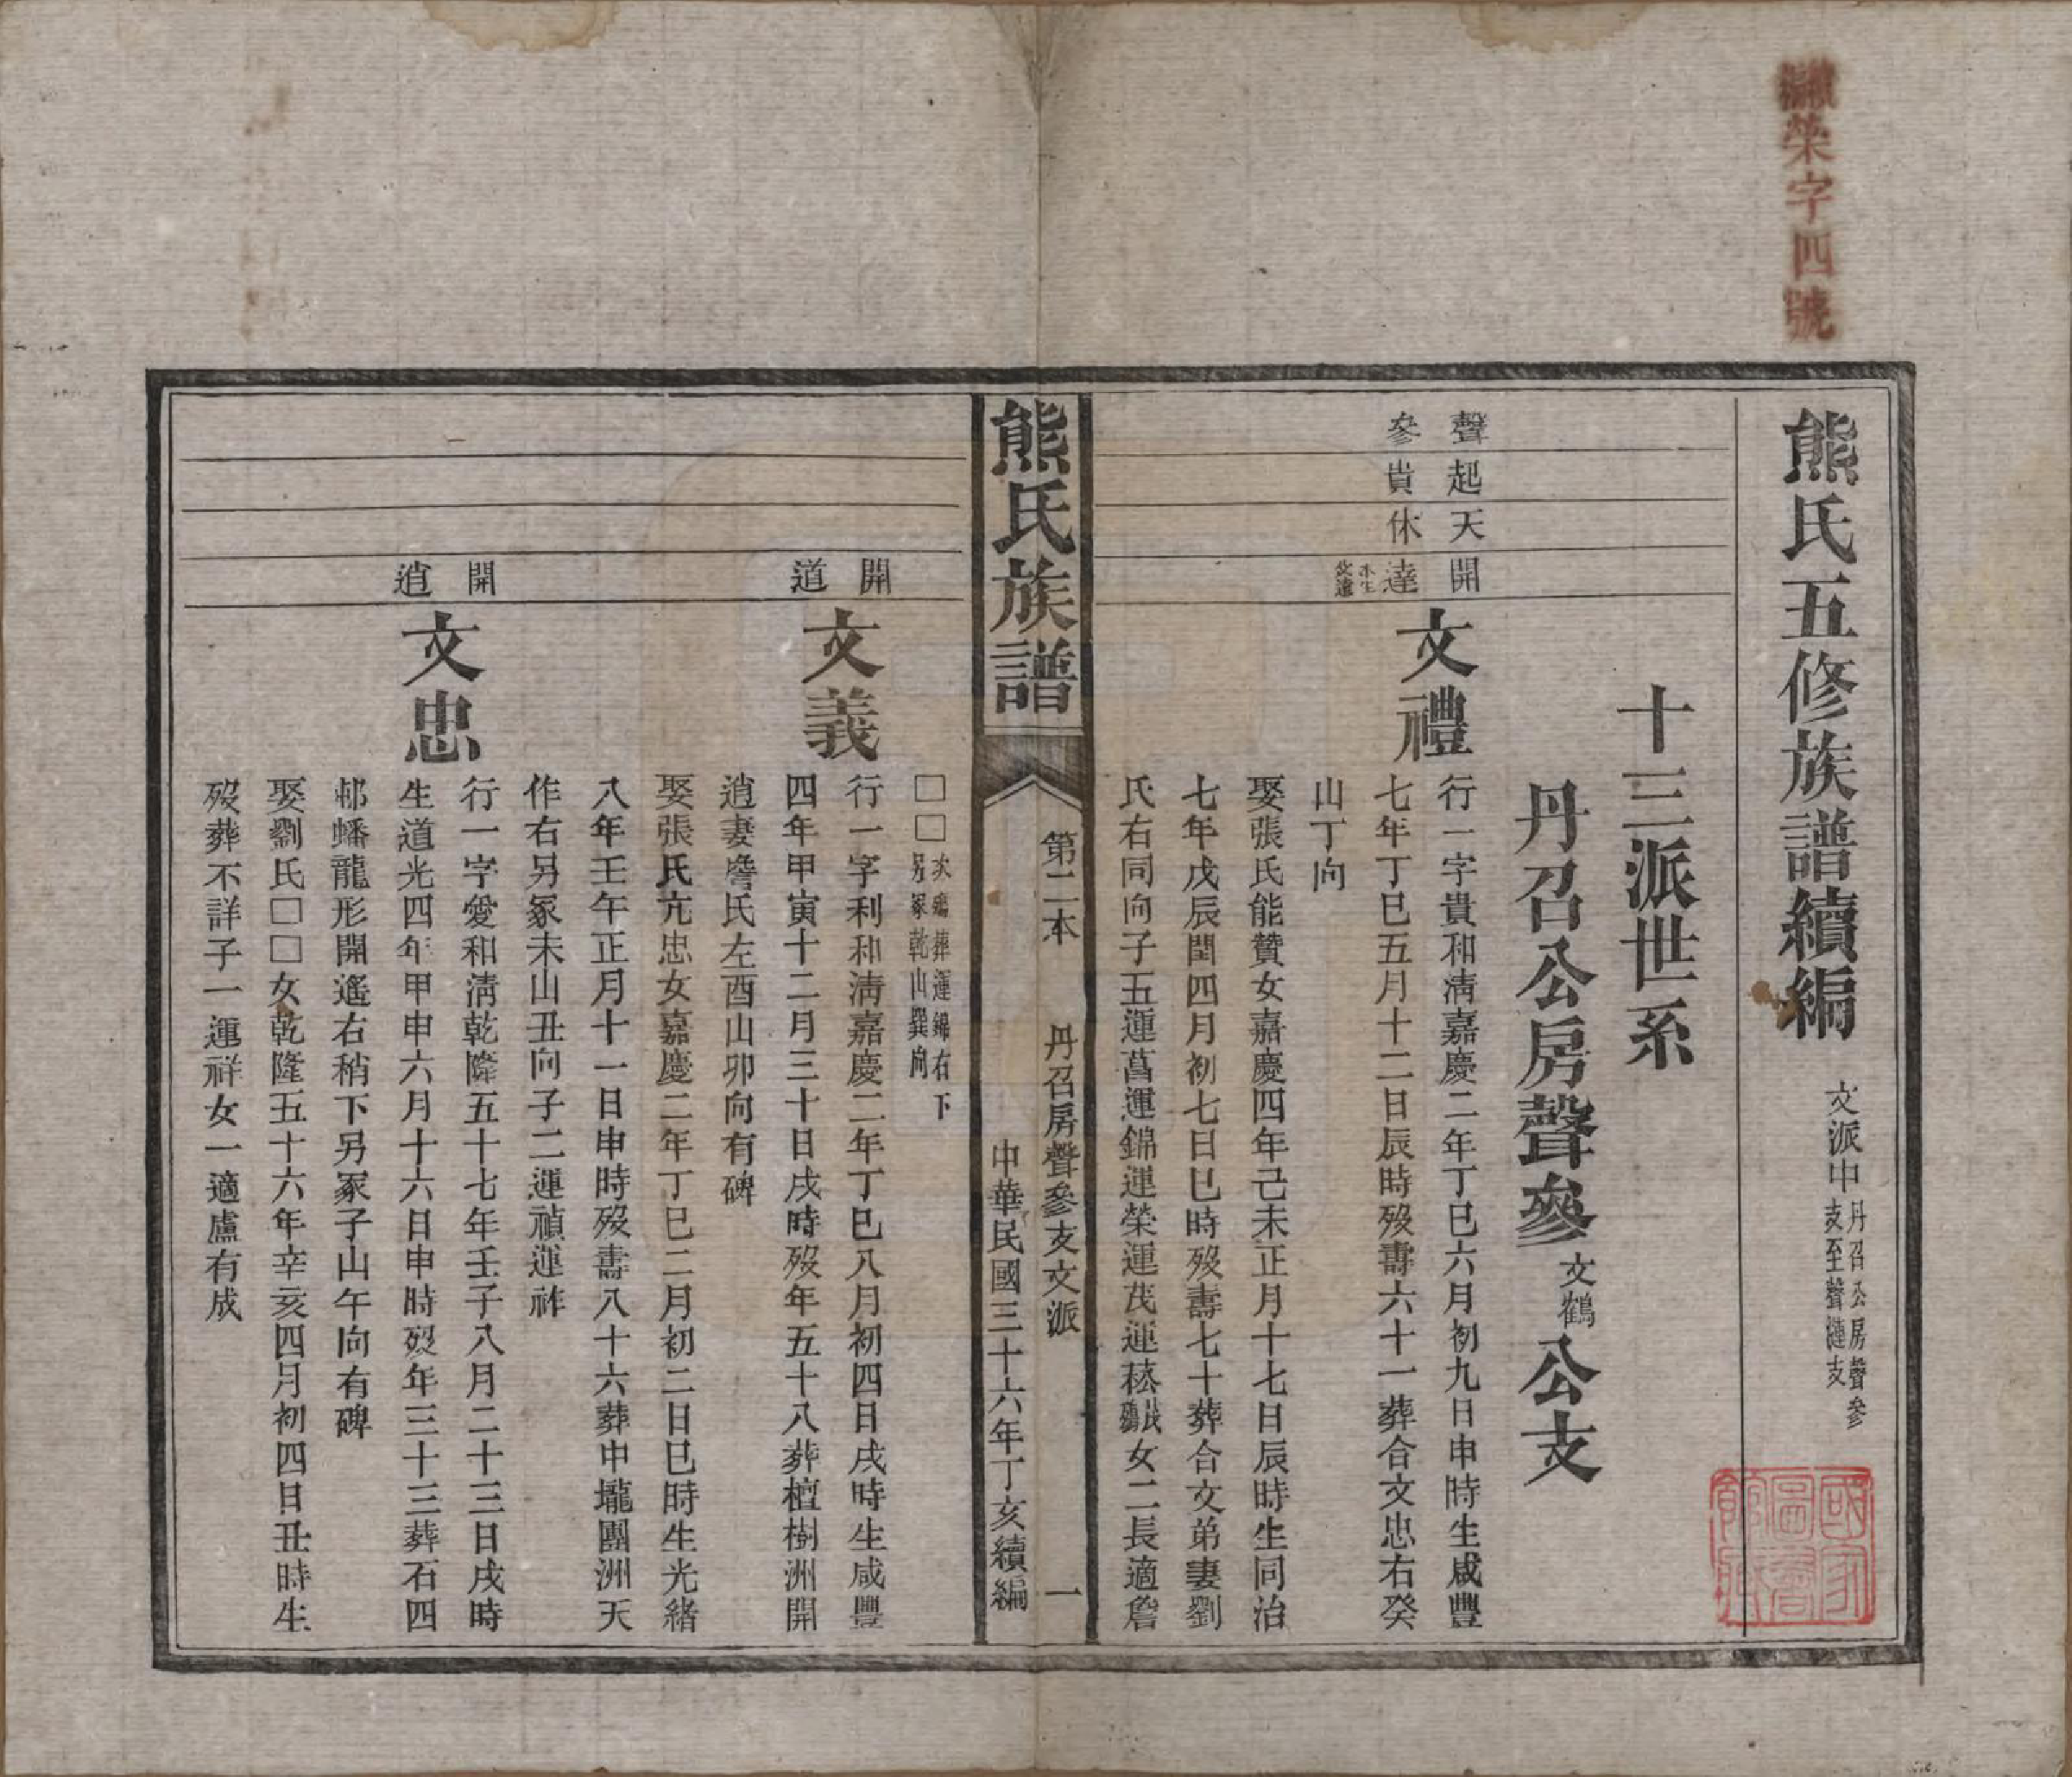 續榮字四號
熊氏五修族譜續編
文派中
丹召公房聲參
支至聲漣支
十三派世系
丹召公房聲參
文鶴
公支
聲起天開
參貴休達
文禮
行一字貴和清嘉慶二年丁巳六月初九日申時生咸豐
七年丁巳五月十二日辰時歿壽六十一葬合文忠右癸
山丁向
娶張氏能贊女嘉慶四年己未正月十七日辰時生同治
七年戊辰閏四月初七日巳時歿壽七十葬合文弟妻劉
氏右同向子五運菖運錦運榮運茂運菘
女二長適詹
熊氏族譜
第二本
丹召房聲參支文派
一
中華民國三十六年丁亥續編
□□
次殤葬運錦右下
另冢乾山巽向
開道
文義
行一字利和清嘉慶二年丁巳八月初四日戌時生咸豐
四年甲寅十二月三十日戌時歿年五十八葬檀樹洲開
逍妻詹氏左酉山卯向有碑
娶張氏亢忠女嘉慶二年丁巳二月初二日巳時生光緒
八年壬午正月十一日申時歿壽八十六葬中壠團洲天
作右另冢未山丑向子二運禎運祚
開逍
文忠
行一字愛和清乾隆五十七年壬子八月二十三日戌時
生道光四年甲申六月十六日申時歿年三十三葬石四
邨蟠龍形開遙右稍下另冢子山午向有碑
娶劉氏□□女乾隆五十六年辛亥四月初四日丑時生
歿葬不詳子一運祥女一適盧有成
國家圖書館藏